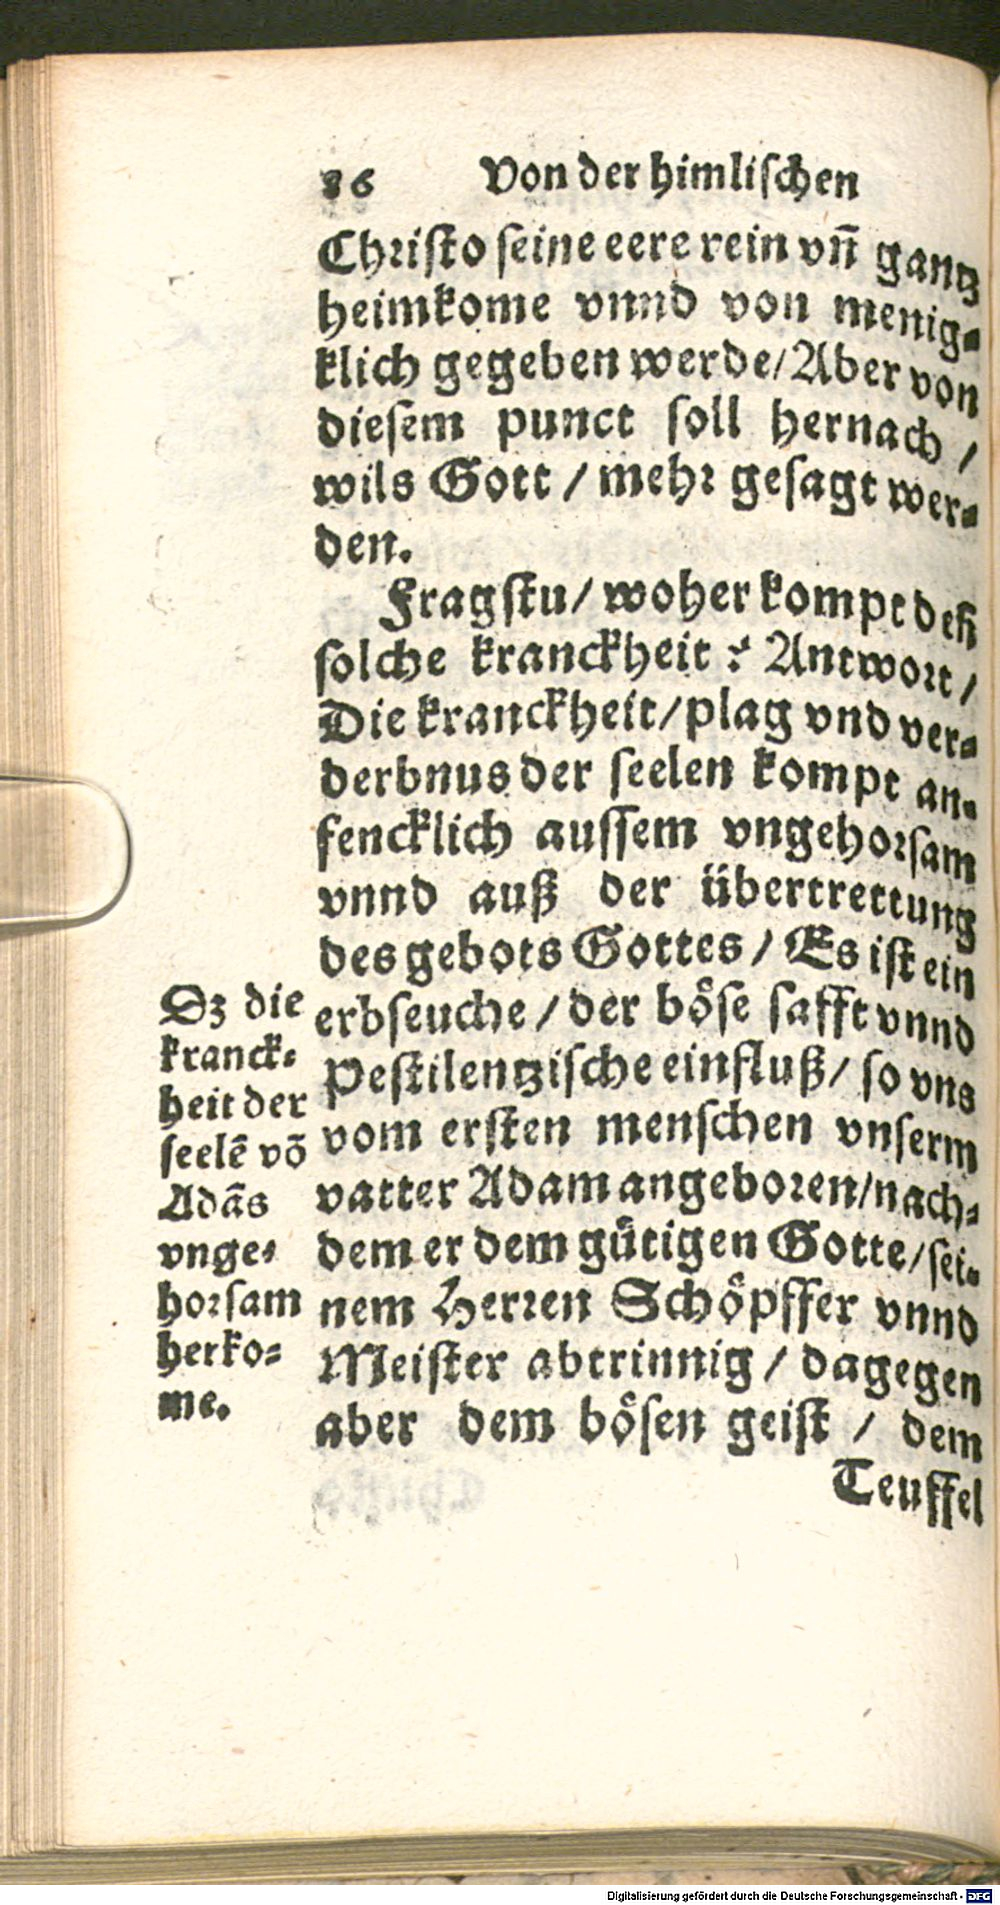 86 Von der himlischen
Christo seine eere rein vn̄ gantz
heimkome vnnd von menig-
klich gegeben werde/ Aber von
diesem punct soll hernach /
wils Gott / mehr gesagt wer-
den.
Fragstu/ woher kompt deñ
solche kranckheit? Antwort/
Die kranckheit/ plag vnd ver-
derbnus der seelen kompt an-
fencklich aussem vngehorsam
vnnd auß der übertrettung
des gebots Gottes / Es ist ein
erbseuche / der böse safft vnnd
Pestilentzische einfluß/ so vns
vom ersten menschen vnserm
vatter Adam angeboren/nach-
dem er dem gütigen Gotte/sei-
nem Herren Schöpffer vnnd
Meister abtrinnig / dagegen
aber dem bösen geist / dem
Teuffel
Dz die
kranck-
heit der
seelē vō
Adās
vnge-
horsam
herko-
me.
Digitalisierung gefördert durch die Deutsche Forschungsgemeinschaft - DFG